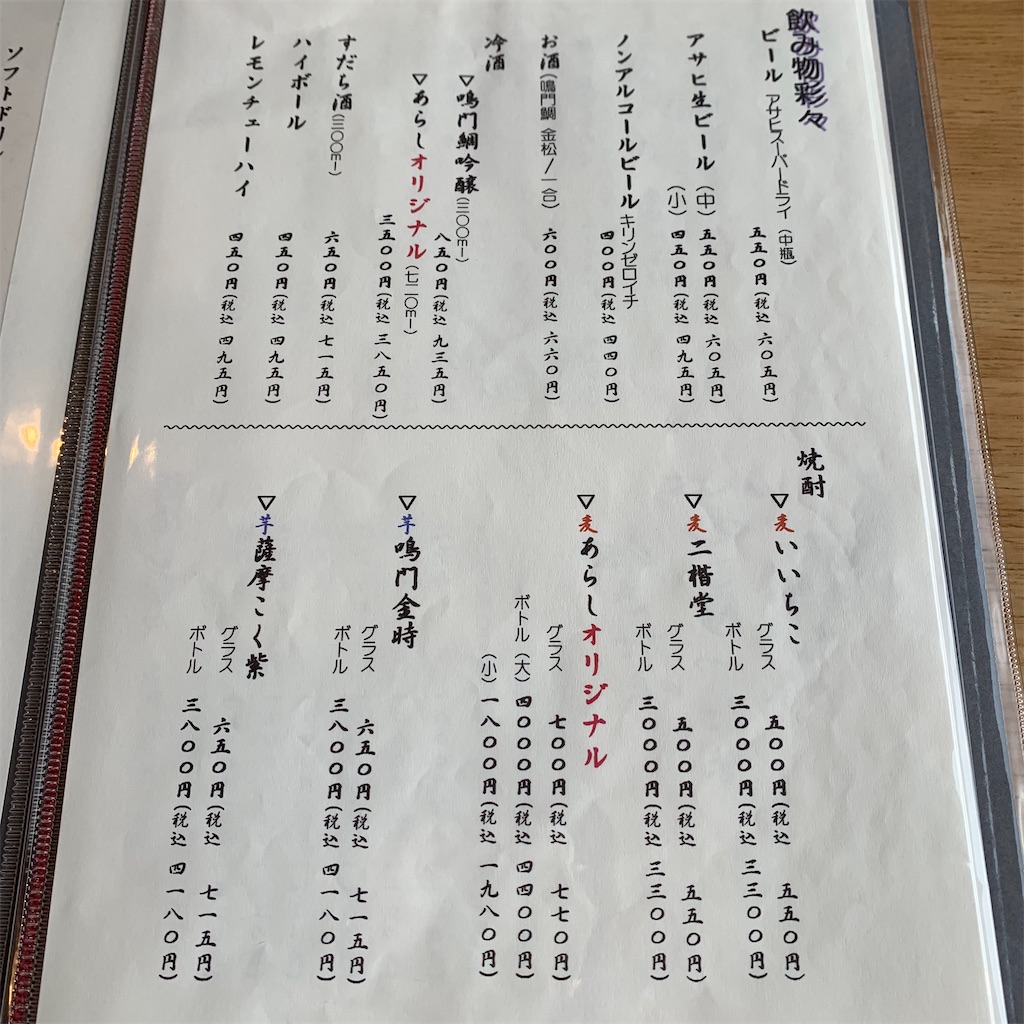 飲み物彩々
ビール アサヒスーパードライ(中瓶)
五五〇円(税込 六〇五円)
アサヒ生ビール(中)五五〇円(税込 六〇五円)
(小)四五〇円(税込 四九五円)
ノンアルコールビール キリンゼロイチ
四〇〇円(税込 四四〇円)
お酒(鳴門鯛 金松/一合) 六〇〇円(税込 六六〇円)
冷酒
▽鳴門鯛吟醸(三〇〇ml)
八五〇円(税込 九三五円)
▽あらしオリジナル(七二〇ml)
三五〇〇円(税込 三八五〇円)
すだち酒(三〇〇ml) 六五〇円(税込 七一五円)
ハイボール 四五〇円(税込 四九五円)
レモンチューハイ 四五〇円(税込 四九五円)
焼酎
▽麦いいちこ
グラス 五〇〇円(税込 五五〇円)
ボトル 三〇〇〇円(税込 三三〇〇円)
▽麦二楷堂
グラス 五〇〇円(税込 五五〇円)
ボトル 三〇〇〇円(税込 三三〇〇円)
▽麦あらしオリジナル
グラス 七〇〇円(税込 七七〇円)
ボトル(大)四〇〇〇円(税込 四四〇〇円)
(小)一八〇〇円(税込 一九八〇円)
▽芋鳴門金時
グラス 六五〇円(税込 七一五円)
ボトル 三八〇〇円(税込 四一八〇円)
▽芋薩摩こく紫
グラス 六五〇円(税込 七一五円)
ボトル 三八〇〇円(税込 四一八〇円)
ソフトドリ